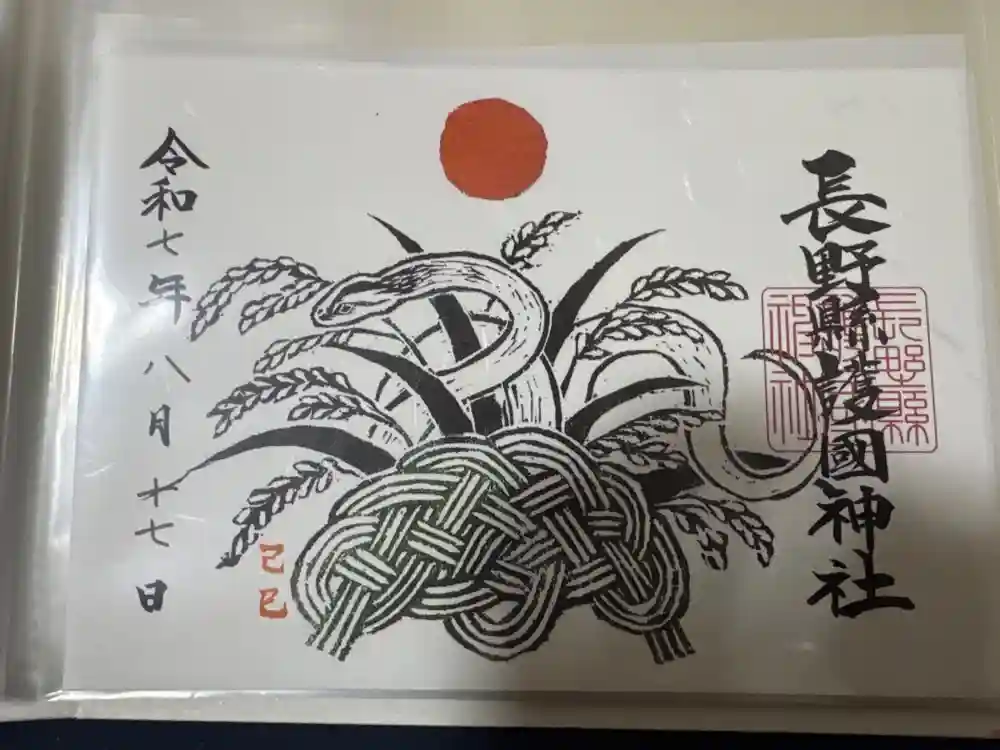 長野縣護國神社
長野縣
己巳
令和七年八月十七日